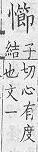 㦢
子切心有度
結也文一